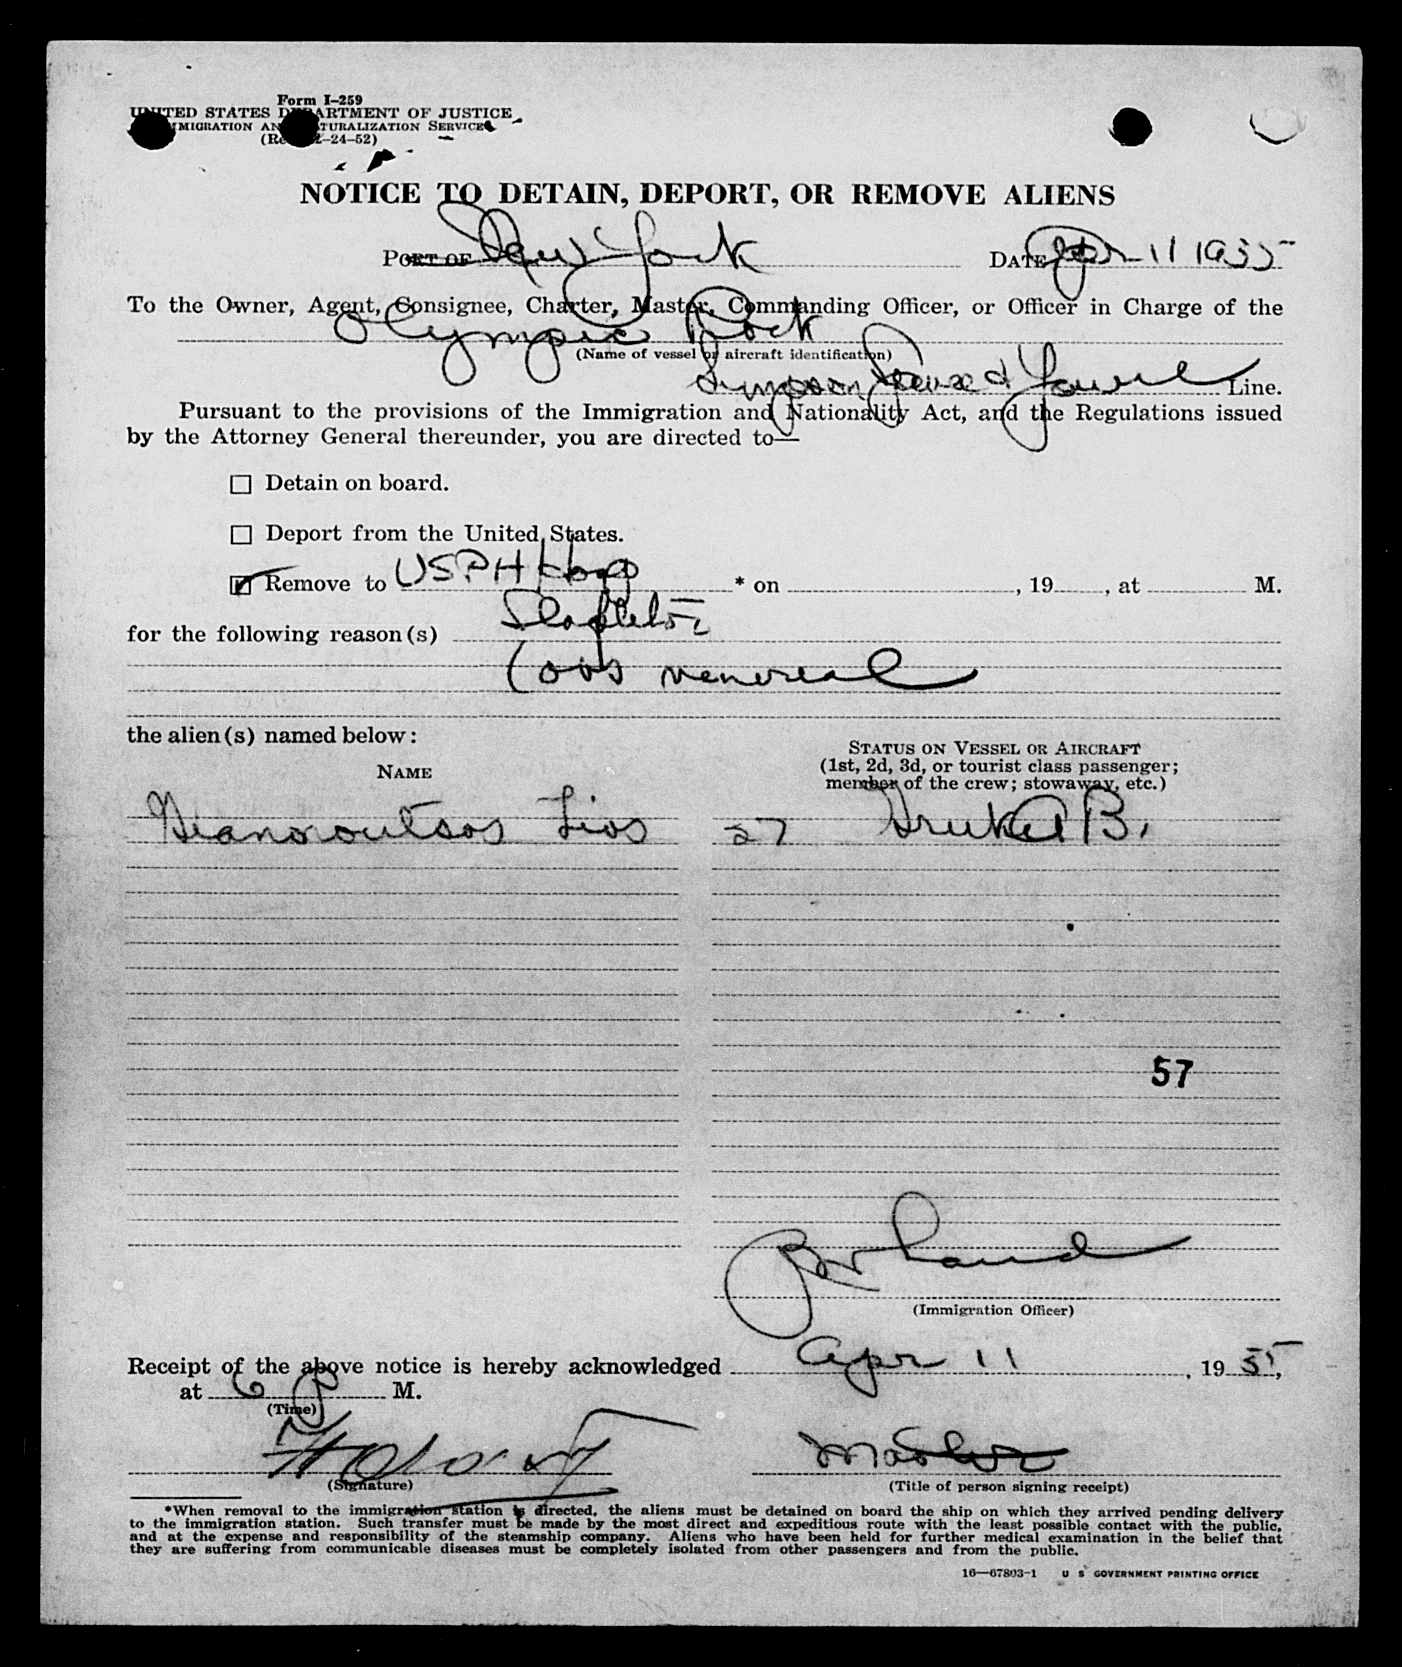 Form I-259
UNITED STATES DEPARTMENT OF JUSTICE
IMMIGRATION AND NATURALIZATION SERVICE
(Rev. -24-52)
NOTICE TO DETAIN, DEPORT, OR REMOVE ALIENS
PORT OF New York DATE Apr 11 1955
To the Owner, Agent, Consignee, Charter, Master, Commanding Officer, or Officer in Charge of the
Olympic Rock
(Name of vessel or aircraft identification)
Simpson Spence & Young Line.
Pursuant to the provisions of the Immigration and Nationality Act, and the Regulations issued
by the Attorney General thereunder, you are directed to—
☐ Detain on board.
☐ Deport from the United States.
☑ Remove to USPH Hosp * on , 19 , at M.
Stapleton
for the following reason(s)
(obs venereal
the alien(s) named below:
NAME
STATUS ON VESSEL OR AIRCRAFT
(1st, 2d, 3d, or tourist class passenger;
member of the crew; stowaway, etc.)
Lios 27 B.
57
(Immigration Officer)
Receipt of the above notice is hereby acknowledged Apr 11, 19 55,
at 6 P M.
(Time)
Master
(Signature) (Title of person signing receipt)
*When removal to the immigration station is directed, the aliens must be detained on board the ship on which they arrived pending delivery
to the immigration station. Such transfer must be made by the most direct and expeditious route with the least possible contact with the public,
and at the expense and responsibility of the steamship company. Aliens who have been held for further medical examination in the belief that
they are suffering from communicable diseases must be completely isolated from other passengers and from the public.
16—67803-1 U S GOVERNMENT PRINTING OFFICE